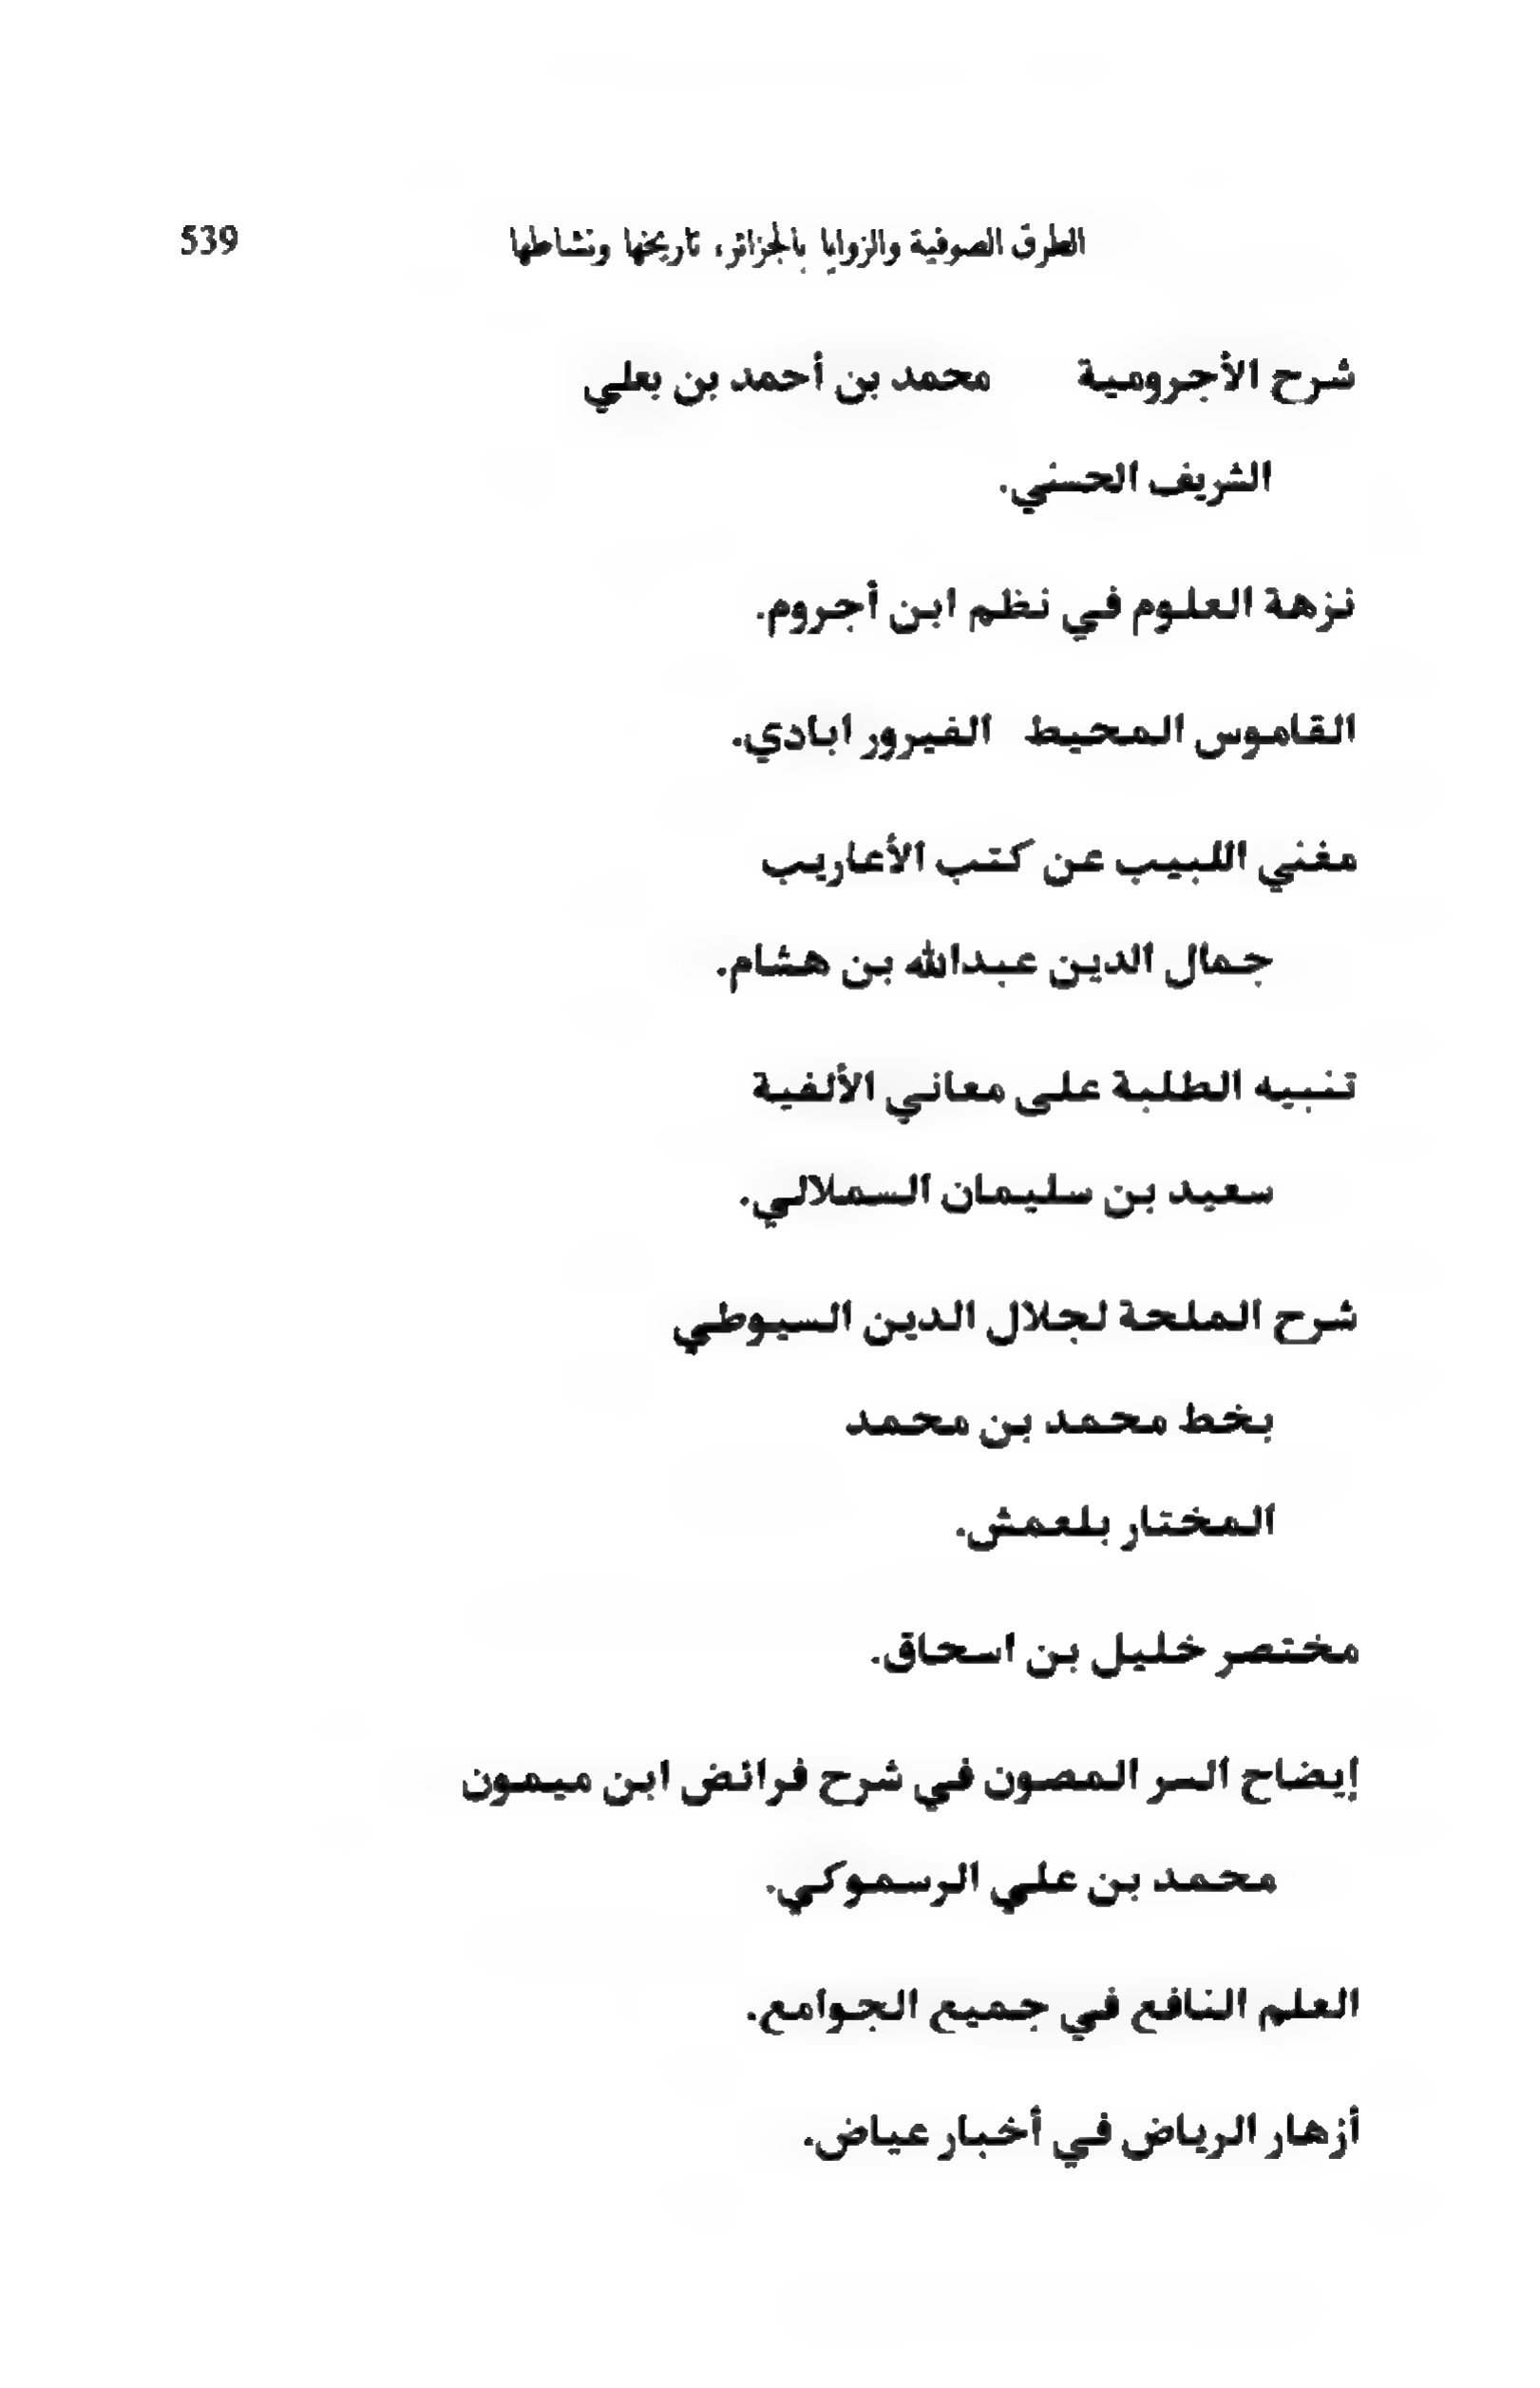 الطرق الصوفية والزوايا بالجزائر، تاريخها ونشاطها 539
شرح الأجرومية محمد بن أحمد بن بعلي
الشريف الحسني.
نزهة العلوم في نظم ابن أجروم.
القاموس المحيط الفيرور ابادي.
مغني اللبيب عن كتب الأعاريب
جمال الدين عبدالله بن هشام.
تنبيه الطلبة على معاني الألفية
سعيد بن سليمان السملالي.
شرح الملحة لجلال الدين السيوطي
بخط محمد بن محمد
المختار بلعمش.
مختصر خليل بن اسحاق.
إيضاح السر المصون في شرح فرائض ابن ميمون
محمد بن علي الرسموكي.
العلم النافع في جميع الجوامع.
أزهار الرياض في أخبار عياض.